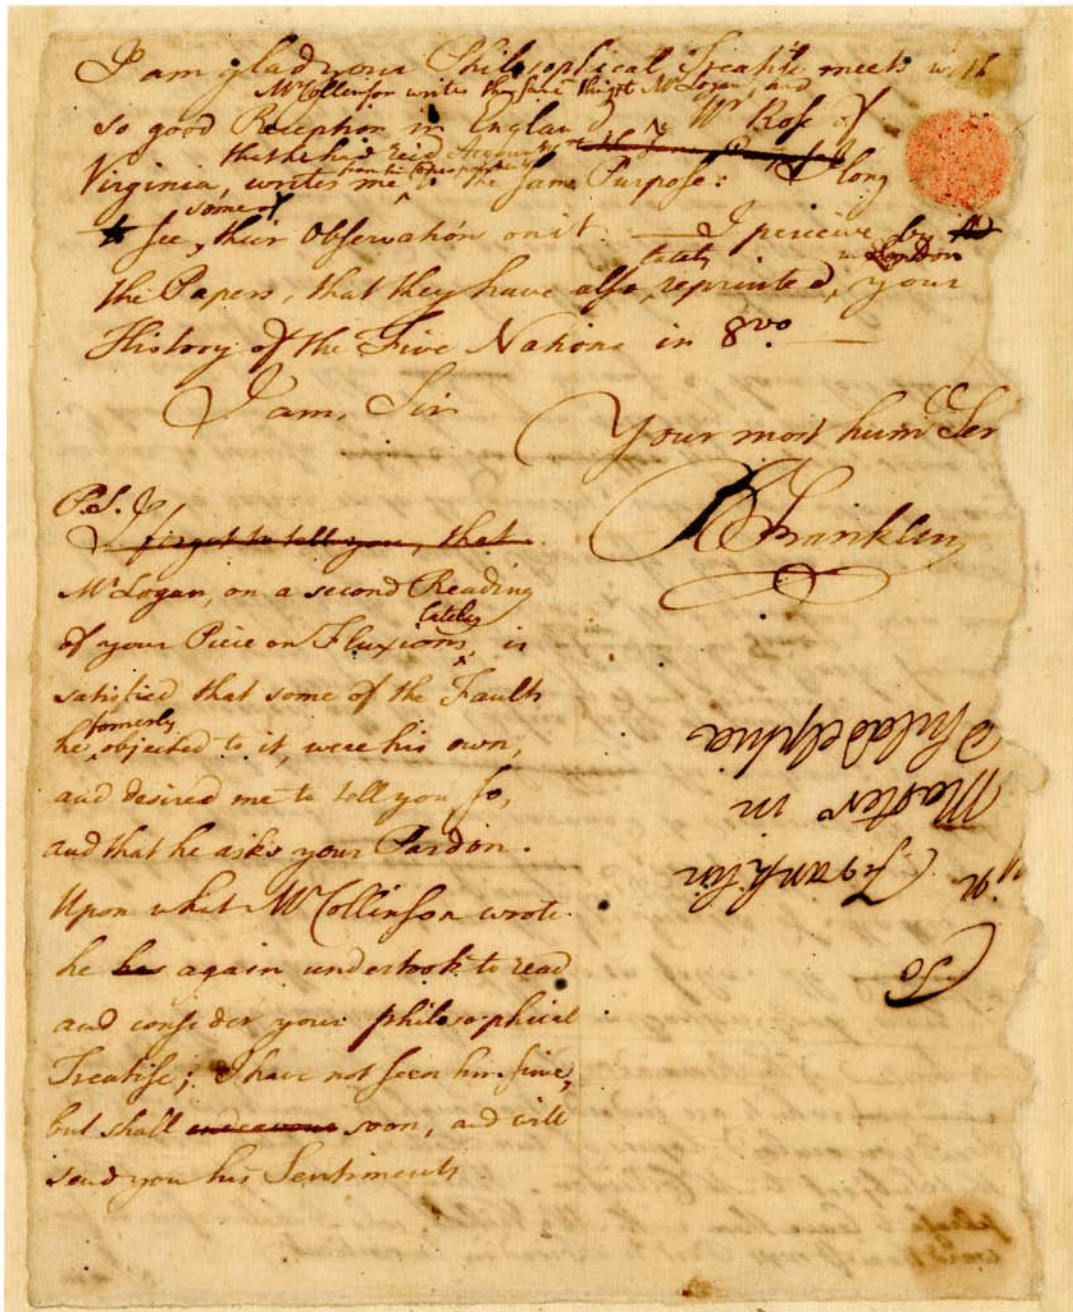 I am glad your Philosophical Treatise meets with
Mr Collinson writes the same thing to Mr Logan, and
so good Reception in England Mr Rose of
that he had rec'd Accounts
from his Correspondents
Virginia, writes me to the same Purpose: I long
some of
to see their Observations on it. — I perceive by
lately in London
the Papers, that they have also reprinted, your
History of the Five Nations in 8vo. —
I am, Sir
Your most hum Ser
B Franklin
P.S. I
forgot to tell you, that
Mr Logan, on a second Reading
lately
of your Piece on Fluxions, is
satisfied that some of the Faults
formerly
he objected to it, were his own,
and desired me to tell you so,
and that he asks your Pardon.
Upon what Mr Collinson wrote
he has again undertook to read
and consider your philosophical
Treatise; I have not seen him since,
but shall endeavour soon, and will
send you his Sentiments
To
Franklin
Master in
Philadelphia